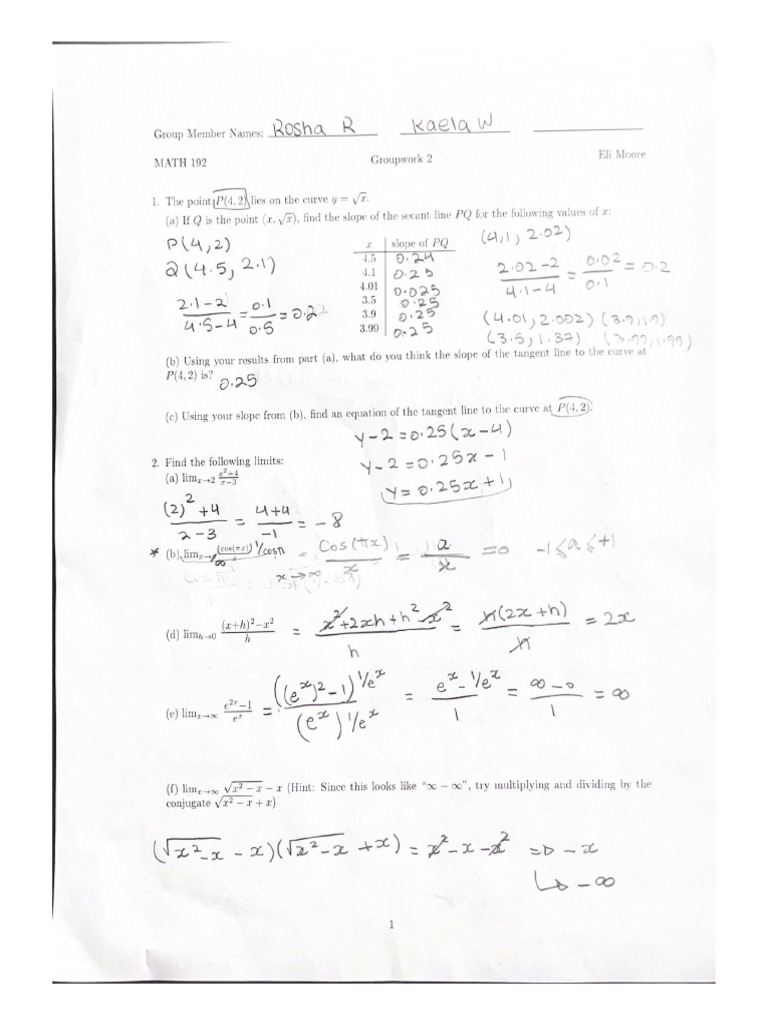 Group Member Names: Rosha R Kaela W
MATH 192 Groupwork 2 Eli Moore
1. The point P(4, 2) lies on the curve y = √x.
(a) If Q is the point (x, √x), find the slope of the secant line PQ for the following values of x:
P(4,2)
Q(4.5, 2.1)
(2.1-2)/(4.5-4) = 0.1/0.5 = 0.2
x slope of PQ
4.5 0.24
4.1 0.25
4.01 0.025
3.5 0.25
3.9 0.25
3.99 0.25
(4,1, 2.02)
(2.02-2)/(4.1-4) = 0.02/0.1 = 0.2
(4.01, 2.002) (3.9, 1.9)
(3.5, 1.87) (3.99, 1.99)
(b) Using your results from part (a), what do you think the slope of the tangent line to the curve at
P(4, 2) is? 0.25
(c) Using your slope from (b), find an equation of the tangent line to the curve at P(4, 2).
y-2 = 0.25(x-4)
y-2 = 0.25x - 1
y = 0.25x + 1
2. Find the following limits:
(a) lim x→2 (x²+4)/(x-3)
((2)²+4)/(2-3) = (4+4)/-1 = -8
* (b) lim x→∞ (cos(πx)) = Cos(πx)/x = a/x = 0 -1≤a≤+1
x→∞
(d) lim h→0 ((x+h)²-x²)/h = (x²+2xh+h²-x²)/h = h(2x+h)/h = 2x
(e) lim x→∞ (e^2x-1)/e^x = ((e^x)²-1)^1/e^x / (e^x)^1/e^x = (e^x - 1/e^x)/1 = (∞-0)/1 = ∞
(f) lim x→∞ √(x² - x) - x (Hint: Since this looks like "∞ - ∞", try multiplying and dividing by the
conjugate √(x² - x) + x)
(√(x²-x) - x)(√(x²-x) + x) = x²-x-x² => -x
↳ -∞
1